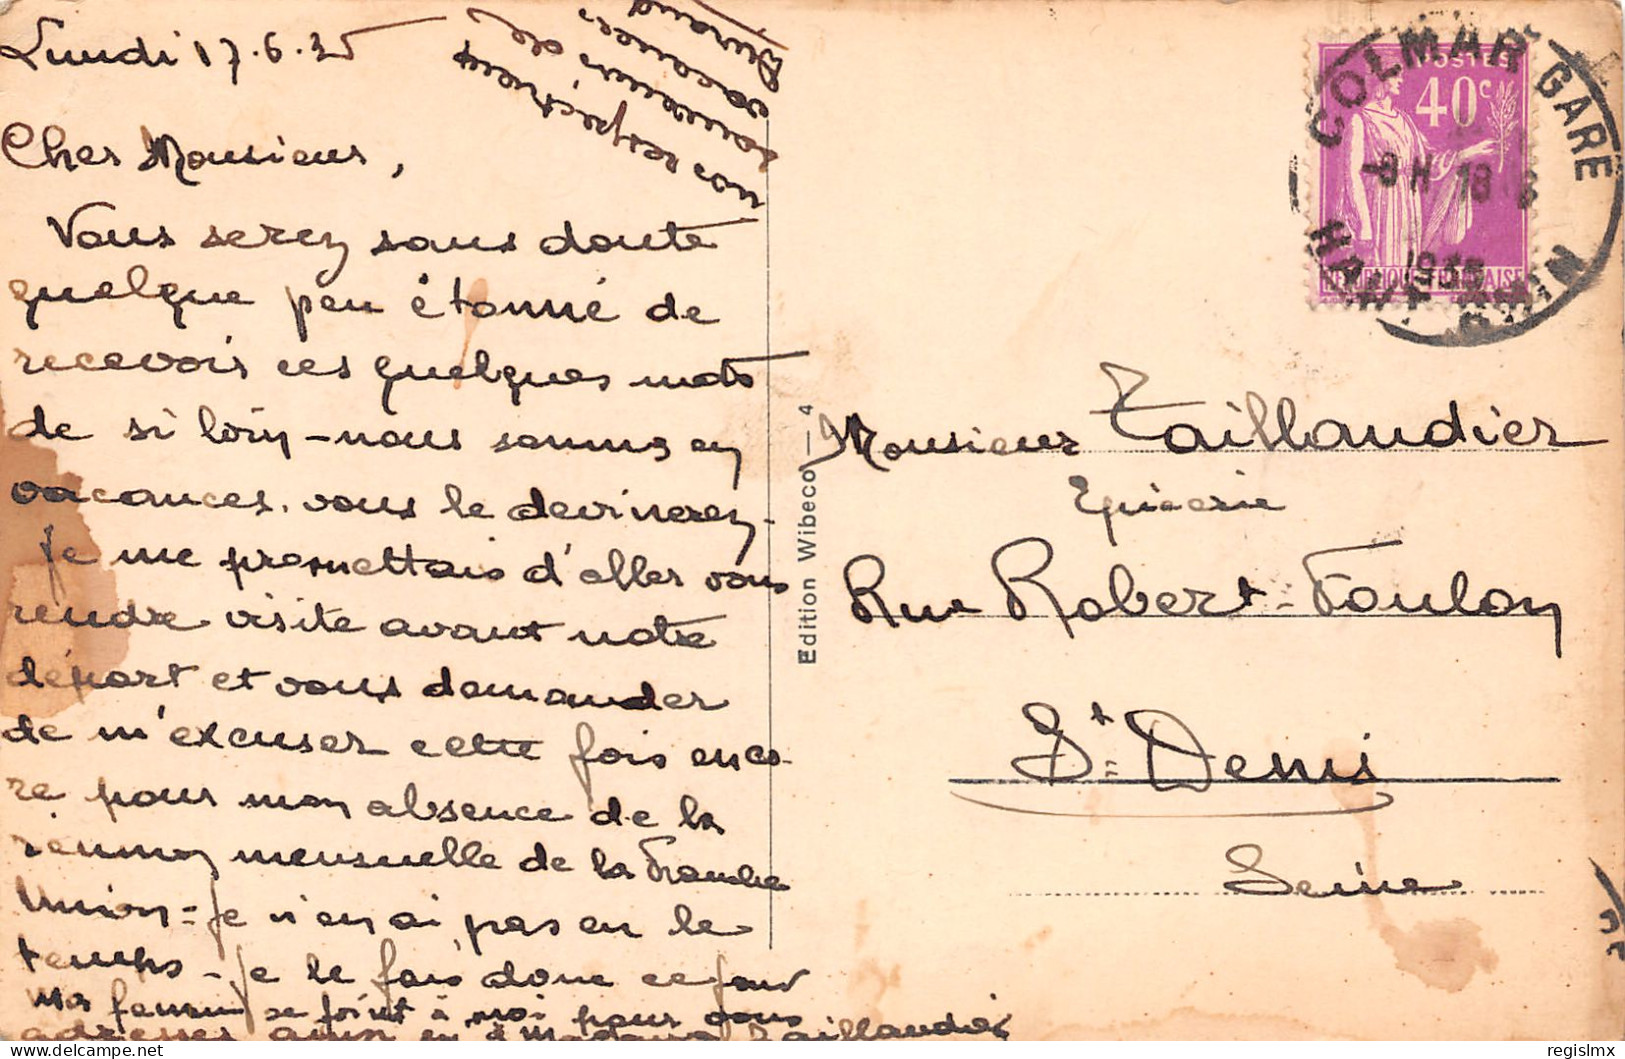 Lundi 17.6.35
Cher Monsieur,
Vous serez sans doute
quelque peu étonné de
recevoir ces quelques mots
de si loin - nous sommes en
vacances. vous le devinerez -
Je me promettais d'aller vous
rendre visite avant notre
départ et vous demander
de m'excuser cette fois enco-
re pour mon absence de la
réunion mensuelle de la Franche
Union - Je n'en ai pas eu le
temps - Je le fais donc ce jour
Ma femme se joint à moi pour vous
adresser ainsi qu'à Madame Taillandier
nos respectueux
souvenirs de
vacances
Durand
Edition Wibeco - 4
COLMAR GARE
HAUT RHIN
8H 18 6
1935
POSTES
40c
REPUBLIQUE FRANÇAISE
Monsieur Taillandier
Epicerie
Rue Robert-Foulon
St=Denis
Seine
regislmx